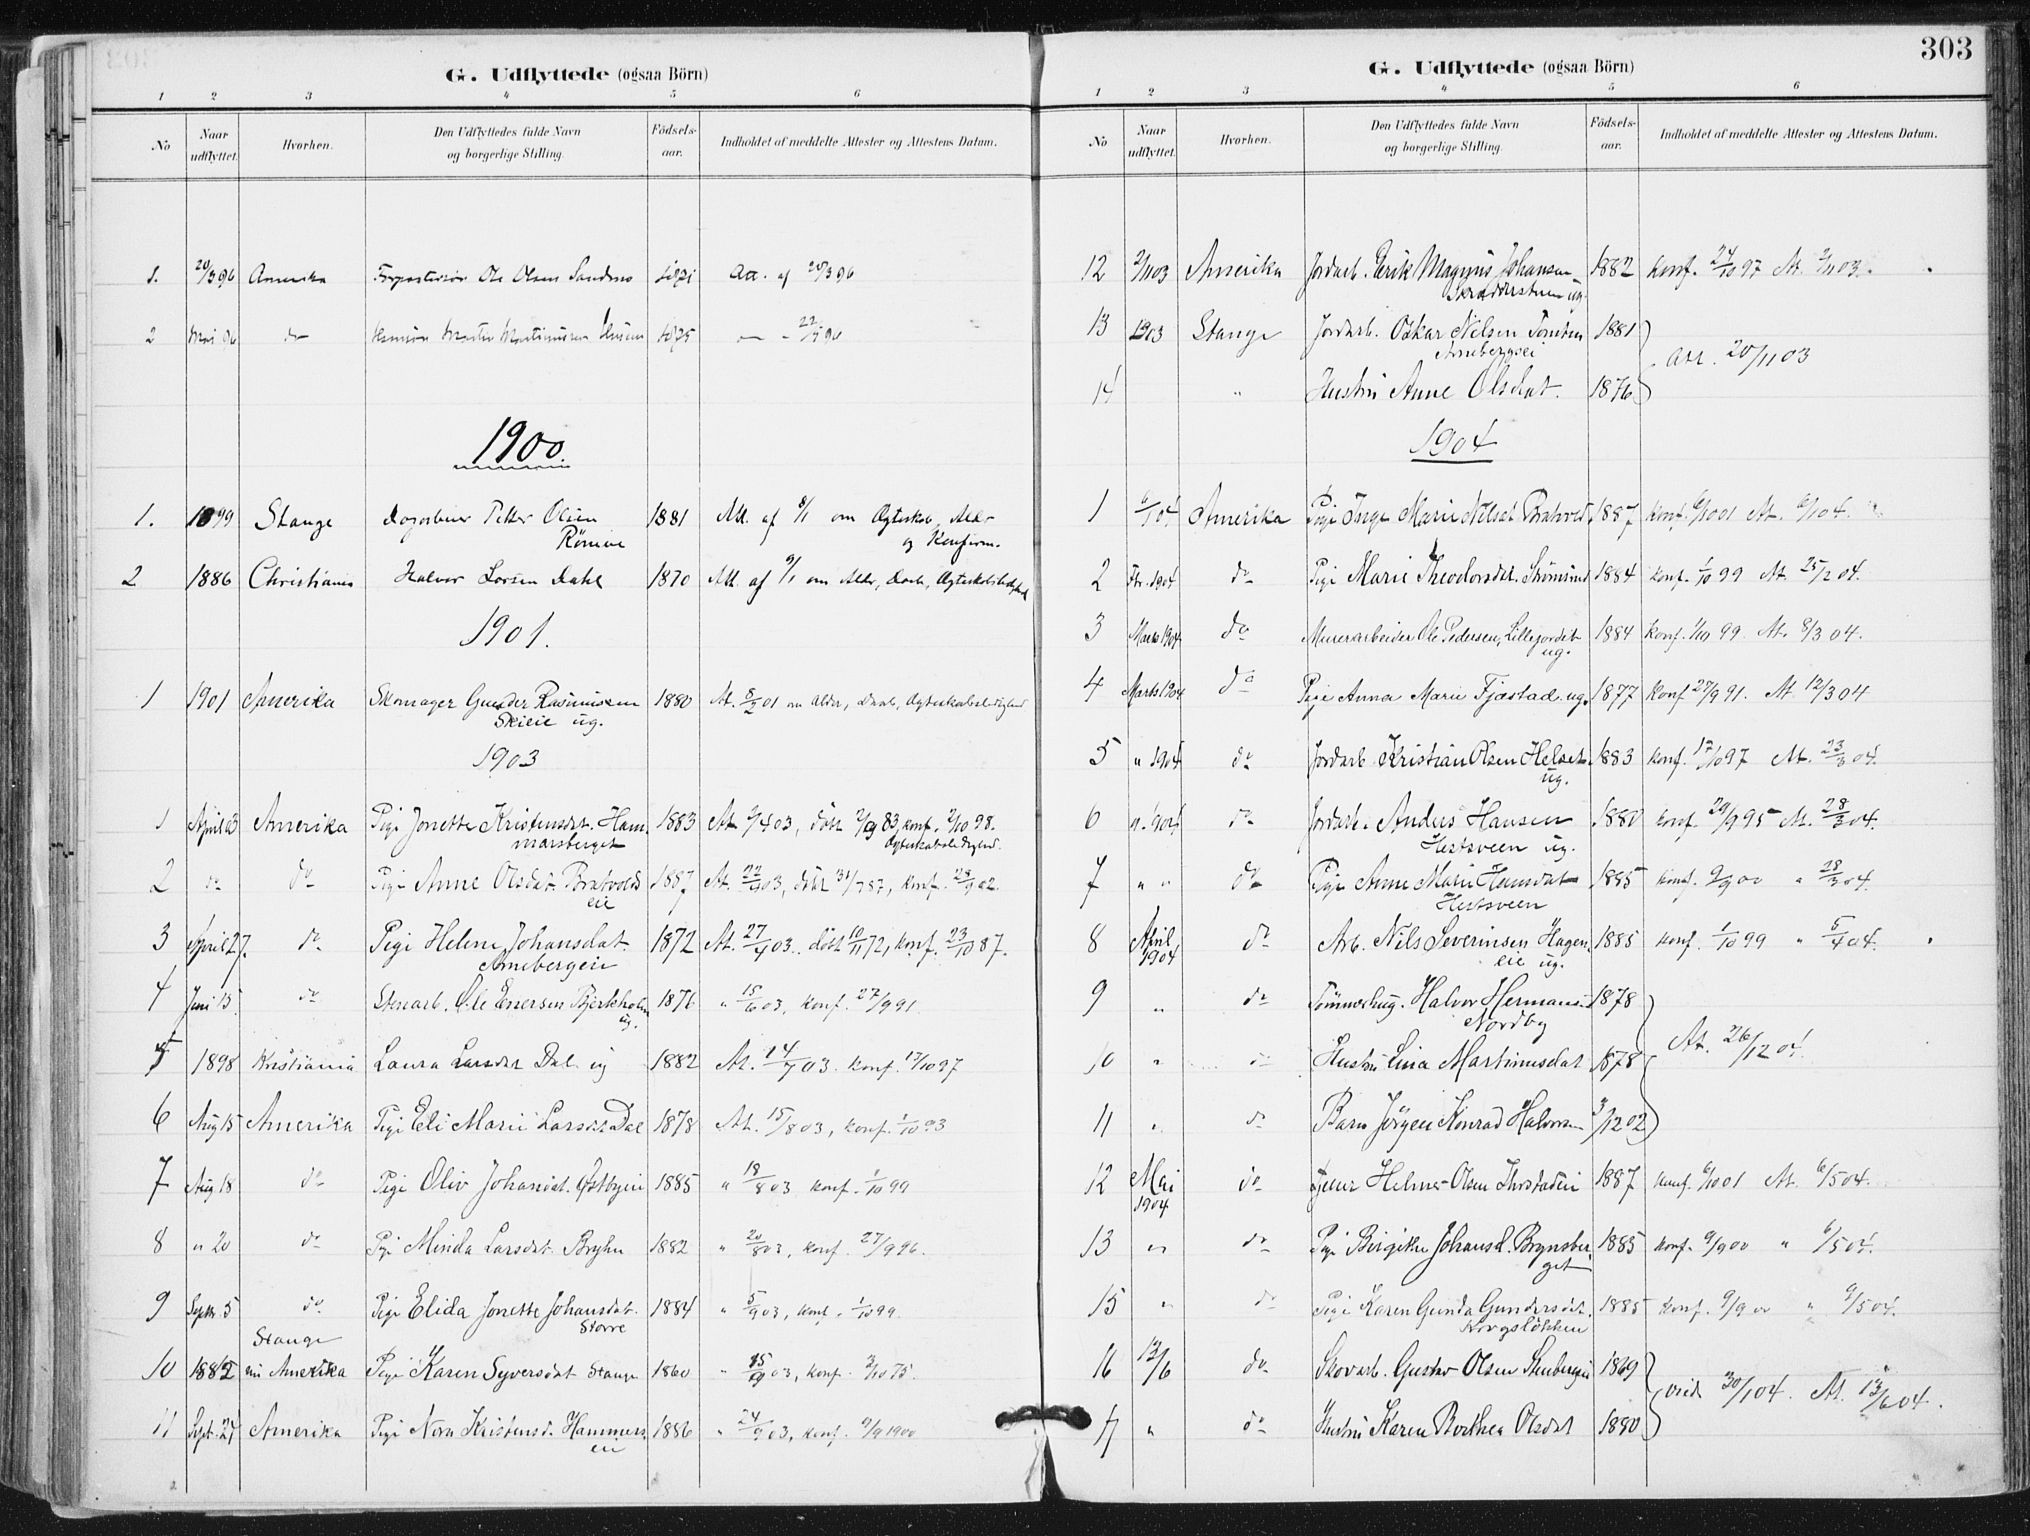 G. Udflyttede (ogsaa Börn)
1 2 3 4 5 6
No
Naar udflyttet.
Hvorhen.
Den Udflyttedes fulde Navn og borgerlige Stilling.
Födsels-aar.
Indholdet af meddelte Attester og Attestens Datum.
1. 20/3 96 Amerika Ole Olsen Att. af 20/3 96
2 Mai 96 do 22/5 96
1900.
1. 1899 Stange Petter Olsen 1881 Att. af 8/1 om Ægteskab, Alder
og Konfirm.
2 1886 Christiania Halvor Larsen Dahl 1870 Att. af 9/1 om Alder, Daab, Ægteskabsledighed
1901.
1 1901 Amerika Skomager Gunder Rasmussen 1880 At. 8/2 01 om Alder, Daab, Ægteskabsledighed
Skieie ug.
1903
1 April 03 Amerika Pige Jonette Kristensdat. Ham- 1883 At. 2/4 03, döbt 2/9 83, konf. 2/10 98.
marsberget Ægteskabsledighed.
2 do do Pige Anne Olsdat. Bratvolds 1887 At. 22/4 03, döbt 31/7 87, konf. 28/9 02.
eie
3 April 27. do Pige Helene Johansdat. 1872 At. 27/4 03. döbt 10/11 72, konf. 23/10 87.
Arnebergeie
4 Juni 15 do Stenarb. Ole Enersen Bjerkholm 1876 " 15/6 03, konf. 27/9 91.
ug.
5 1898 Kristiania Laura Larsdat Dal ug 1882 At. 14/7 03. konf. 17/10 97
6 Aug 15 Amerika Pige Eli Marie Larsdt Dal 1878 At. 15/8 03, konf. 1/10 93
7 Aug 18 do Pige Oliv Johansdat. Östbyeie 1885 " 18/8 03, konf. 1/10 99
8 " 20 do Pige Minda Larsdat. Bryhn 1882 " 20/8 03, konf. 27/9 96.
9 Septr. 5 do Pige Elida Jonette Johansdat. 1884 " 5/9 03, konf. 1/10 99.
Storre
Stange
10 1882 nu Amerika Pige Karen Syversdat Stange 1860 " 15/9 03, konf. 3/10 75.
11 Sept. 24 Amerika Pige Nora Kristensd. Hammers- 1886 " 24/9 03, konf. 9/9 1900
eie
303
G. Udflyttede (ogsaa Börn)
1 2 3 4 5 6
No
Naar udflyttet.
Hvorhen.
Den Udflyttedes fulde Navn og borgerlige Stilling.
Födsels-aar.
Indholdet af meddelte Attester og Attestens Datum.
12 2/11 03 Amerika Jordarb. Erik Magnus Johansen 1882 konf. 24/10 97 At. 2/11 03.
ug.
13 1903 Stange Jordarb. Oskar Nilsen 1881
Arnebergeie
Att. 20/11 03
14 " Hustru Anne Olsdat. 1876
1904
1 6/1 04 Amerika Pige Inga Marie Nilsdt Bratvold 1887 konf. 6/10 01 At. 6/1 04.
2 Fbr. 1904 do Pige Marie Theodorsdat. Strömsmd 1884 konf. 1/10 99 At. 25/2 04.
3 Marts 1904 do Murerarbeider Ole Pedersen, Lillejordet 1884 konf. 1/10 99. At. 8/3 04.
ug.
4 Marts 1904 do Pige Anna Marie Fjæstad ug. 1877 konf 27/9 91. At. 12/3 04
5 " 1904 do Jordarb. Kristian Olsen Helset 1883 konf. 17/10 97 At. 23/3 04.
ug.
6 " 1904 do Jordarb. Anders Hansen 1880 konf. 29/9 95 At. 28/3 04.
Hestsveen ug.
7 " " do Pige Anne Marie Hansdat 1885 konf. 9/9 00 " 28/3 04.
Hestsveen
8 April 1904 do Arb. Nils Severinsen Hagen- 1885 konf. 1/10 99 " 5/4 04.
eie ug.
9 " do Tömmerhug. Halvor Hermans. 1878
Nordby
10 " do Hustru Lina Martinusdat 1878
At. 26/12 04.
11 " do Barn Jörgen Konrad Halvorsen 3/12 02
12 Mai 1904 do Helmer Olsen 1887 konf. 6/10 01 At. 6/5 04.
13 " do Pige Birgithe Johansd. Brynsber- 1885 konf. 9/9 00 " 6/5 04.
get
15 " do Pige Karen Gunda Gundersdat. 1885 konf. 9/9 00 " 9/5 04.
Korgslökken
16 13/6 do Skovarb. Gustav Olsen Stenbergeie 1869
viet 30/1 04. At. 13/6 04.
17 " do Hustru Karen Borthea Olsdat 1880